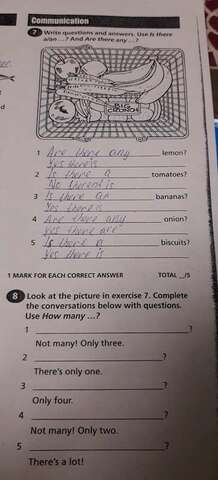 Communication
7 Write questions and answers. Use Is there
a/an ...? And Are there any ...?
1 Are there any lemon?
Yes there is
2 Is there a tomatoes?
No
3 Is there bananas?
Yes there's
4 Are there any onion?
yes there are
5 Is there a biscuits?
yes there is
1 MARK FOR EACH CORRECT ANSWER TOTAL __/5
8 Look at the picture in exercise 7. Complete
the conversations below with questions.
Use How many ...?
1 ?
Not many! Only three.
2 ?
There's only one.
3 ?
Only four.
4 ?
Not many! Only two.
5 ?
There's a lot!